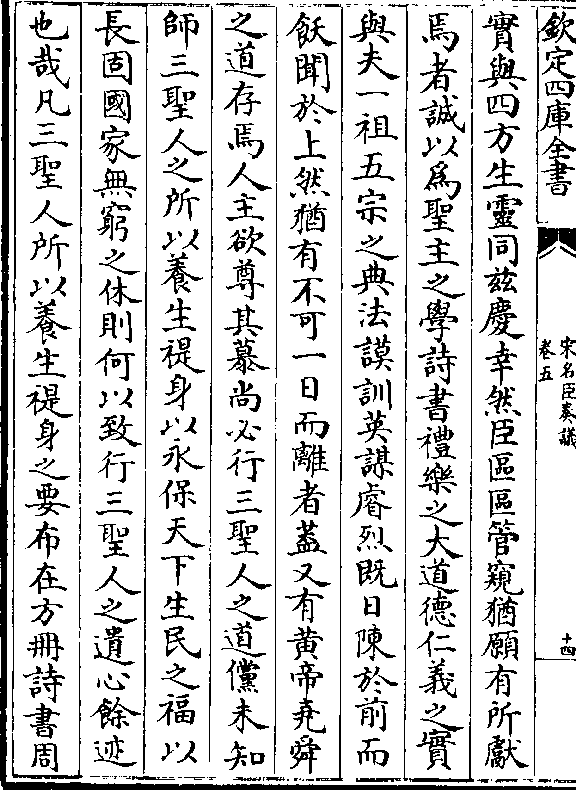 欽定四庫全書
宋名臣奏議
卷五
十四
實與四方生靈同兹慶幸然臣區區管窺猶願有所獻
焉者誠以為聖主之學詩書禮樂之大道德仁義之實
與夫一祖五宗之典法謨訓英謀睿烈既日陳於前而
飫聞於上然猶有不可一日而離者蓋又有黄帝堯舜
之道存焉人主欲尊其慕尚必行三聖人之道儻未知
師三聖人之所以養生禔身以永保天下生民之福以
長固國家無窮之休則何以致行三聖人之遺心餘迹
也哉凡三聖人所以養生禔身之要布在方冊詩書周